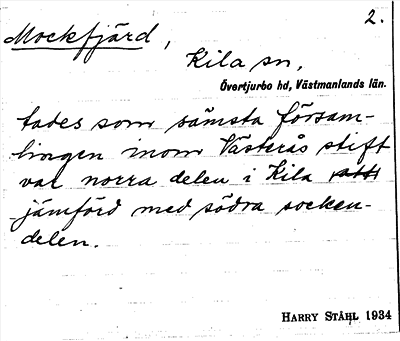 2.
Mockfjärd,
Kila sn,
Övertjurbo hd, Västmanlands län.
tades som sämsta försam-
lingen inom Västerås stift
var norra delen i Kila
jämförd med södra socken-
delen.
HARRY STÅHL 1934